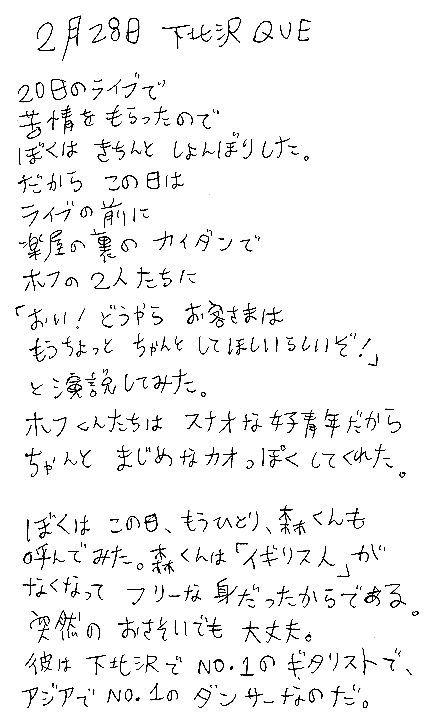 2月28日 下北沢 QUE
20日のライブで
苦情をもらったので
ぼくは きちんと しょんぼりした。
だから この日は
ライブの前に
楽屋の裏の カイダンで
ホフの2人たちに
「おい！どうやら お客さまは
もうちょっと ちゃんと してほしいらしいぞ！」
と演説してみた。
ホフくんたちは スナオな好青年だから
ちゃんと まじめなカオっぽくしてくれた。
ぼくは この日、もうひとり、森くんも
呼んでみた。森くんは「イギリス人」が
なくなって フリーな身だったからである。
突然の おさそいでも 大丈夫。
彼は 下北沢で NO.1の ギタリストで、
アジアで NO.1の ダンサーなのだ。